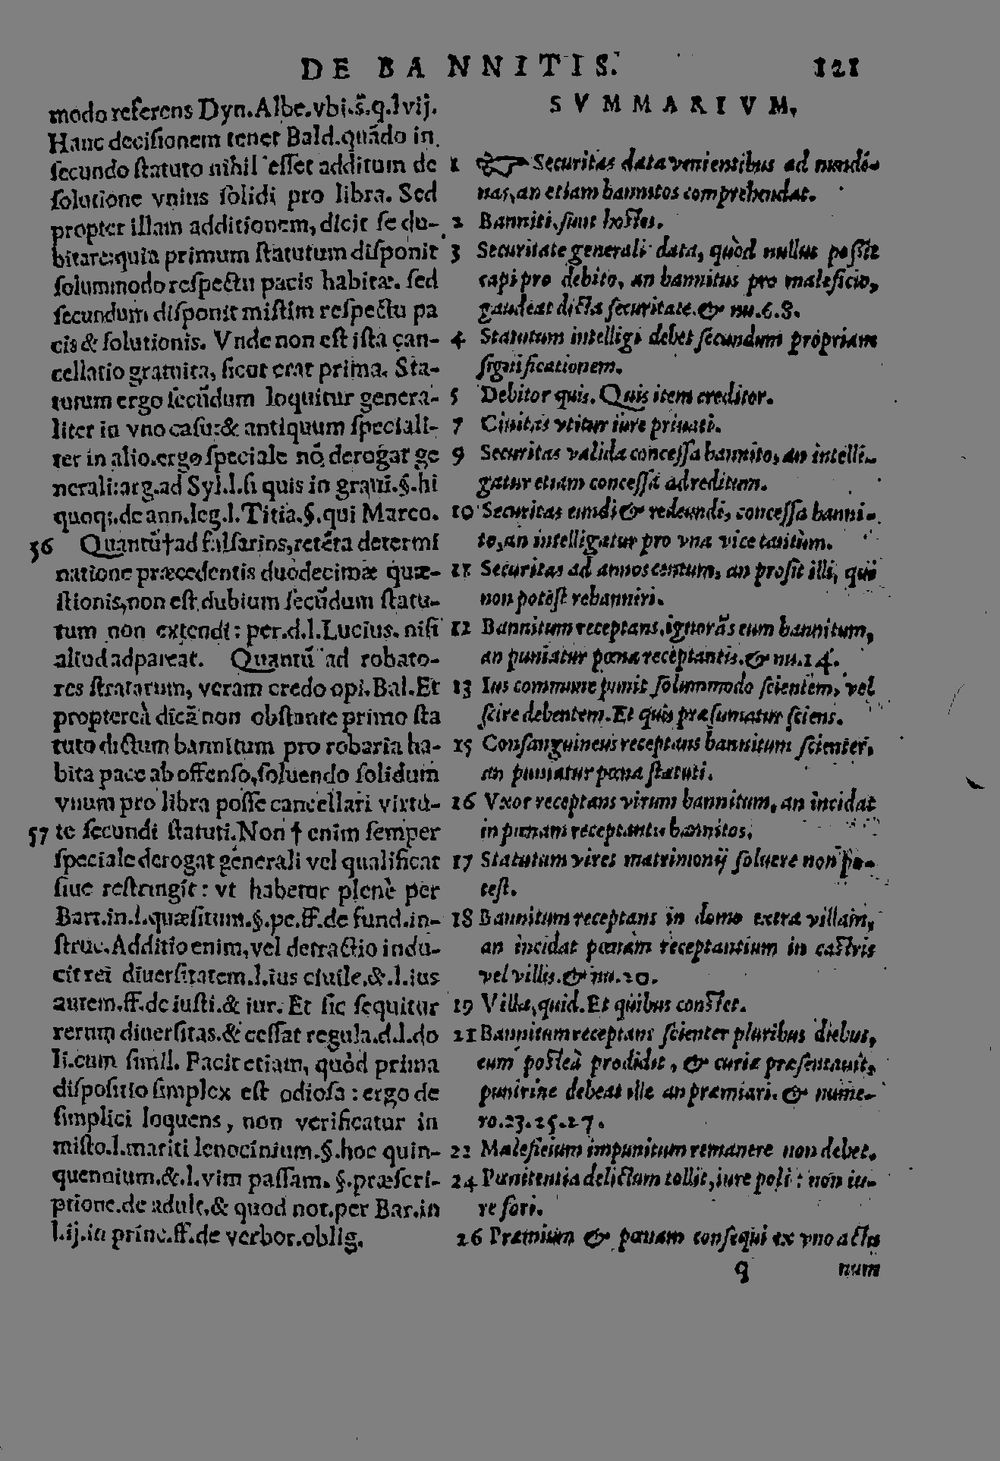 DE BANNITIS. 121
modo referens Dyn. Albe. vbi. s̄. q. lvij.
Hanc decisionem tenet Bald. quādo in
secundo ſtatuto nihil eſſet additum de
ſolutione vnius ſolidi pro libra. Sed
propter illam additionem, dicit ſe du-
bitare: quia primum ſtatutum diſponit
ſolummodo reſpectu pacis habitæ. ſed
ſecundum diſponit miſtim reſpectu pa
cis & ſolutionis. Vnde non eſt iſta can-
cellatio gratuita, ſicut erat prima. Sta-
tutum ergo ſecūdum loquitur genera-
liter in vno caſu: & antiquum ſpeciali-
ter in alio. ergo ſpeciale nō derogat ge
nerali: arg. ad Syl. l. ſi quis in graui. §. hi
quoq;. de ann. leg. l. Titia. §. qui Marco.
56 Quantū † ad falſarios, retēta determi
natione præcedentis duodecimæ quæ-
ſtionis, non eſt dubium ſecūdum ſtatu-
tum non extendi: per. d. l. Lucius. niſi
aliud adpareat. Quantū ad robato-
res ſtratarum, veram credo opi. Bal. Et
propterea dicā non obſtante primo ſta
tuto dictum bannitum pro robaria ha-
bita pace ab offenſo, ſoluendo ſolidum
vnum pro libra poſſe cancellari virtu-
57 te ſecundi ſtatuti. Non † enim ſemper
ſpeciale derogat generali vel qualificat
ſiue reſtringit: vt habetur plenè per
Bart. in. l. quæſitum. §. pe. ff. de fund. in-
ſtruc. Additio enim, vel detractio indu-
cit rei diuerſitatem. l. ius ciuile. &. l. ius
autem. ff. de iuſti. & iur. Et ſic ſequitur
rerum diuerſitas. & ceſſat regula. d. l. do
li. cum ſimil. Facit etiam, quòd prima
diſpoſitio ſimplex eſt odioſa: ergo de
ſimplici loquens, non verificatur in
miſto. l. mariti lenocinium. §. hoc quin-
quennium. &. l. vim paſſam. §. præſcri-
ptione. de adult. & quod not. per Bar. in
l. ij. in princ. ff. de verbor. oblig.
SVMMARIVM.
1 ☞ Securitas data venientibus ad nundi-
nas, an etiam bannitos comprehendat.
2 Banniti, ſunt hoſtes.
3 Securitate generali data, quòd nullus poſſit
capi pro debito, an bannitus pro maleficio,
gaudeat dicta ſecuritate. & nu. 6. 8.
4 Statutum intelligi debet ſecundum propriam
ſignificationem.
5 Debitor quis. Quis item creditor.
7 Ciuitas vtitur iure priuati.
9 Securitas valida conceſſa bannito, an intelli-
gatur etiam conceſſa ad reditum.
10 Securitas eundi & redeundi, conceſſa banni-
to, an intelligatur pro vna vice tantùm.
11 Securitas ad annos centum, an proſit illi, qui
non poteſt rebanniri.
12 Bannitum receptans, ignorās eum bannitum,
an puniatur pœna receptantis. & nu. 14.
13 Ius commune punit ſolummodo ſcientem, vel
ſcire debentem. Et quis præſumatur ſciens.
15 Conſanguineus receptans bannitum ſcienter,
an puniatur pœna ſtatuti.
16 Vxor receptans virum bannitum, an incidat
in pœnam receptantis bannitos.
17 Statutum vires matrimonij ſoluere non po-
teſt.
18 Bannitum receptans in domo extra villam,
an incidat pœnam receptantium in caſtris
vel villis. & nu. 20.
19 Villa, quid. Et quibus conſtet.
21 Bannitum receptans ſcienter pluribus diebus,
eum poſteà prodidit, & curiæ præſentauit,
punirine debeat ille an præmiari. & nume-
ro. 23. 25. 27.
22 Maleficium impunitum remanere non debet.
24 Pœnitentia delictum tollit, iure poli: non iu-
re fori.
26 Præmium & pœnam conſequi ex vno actu
q num